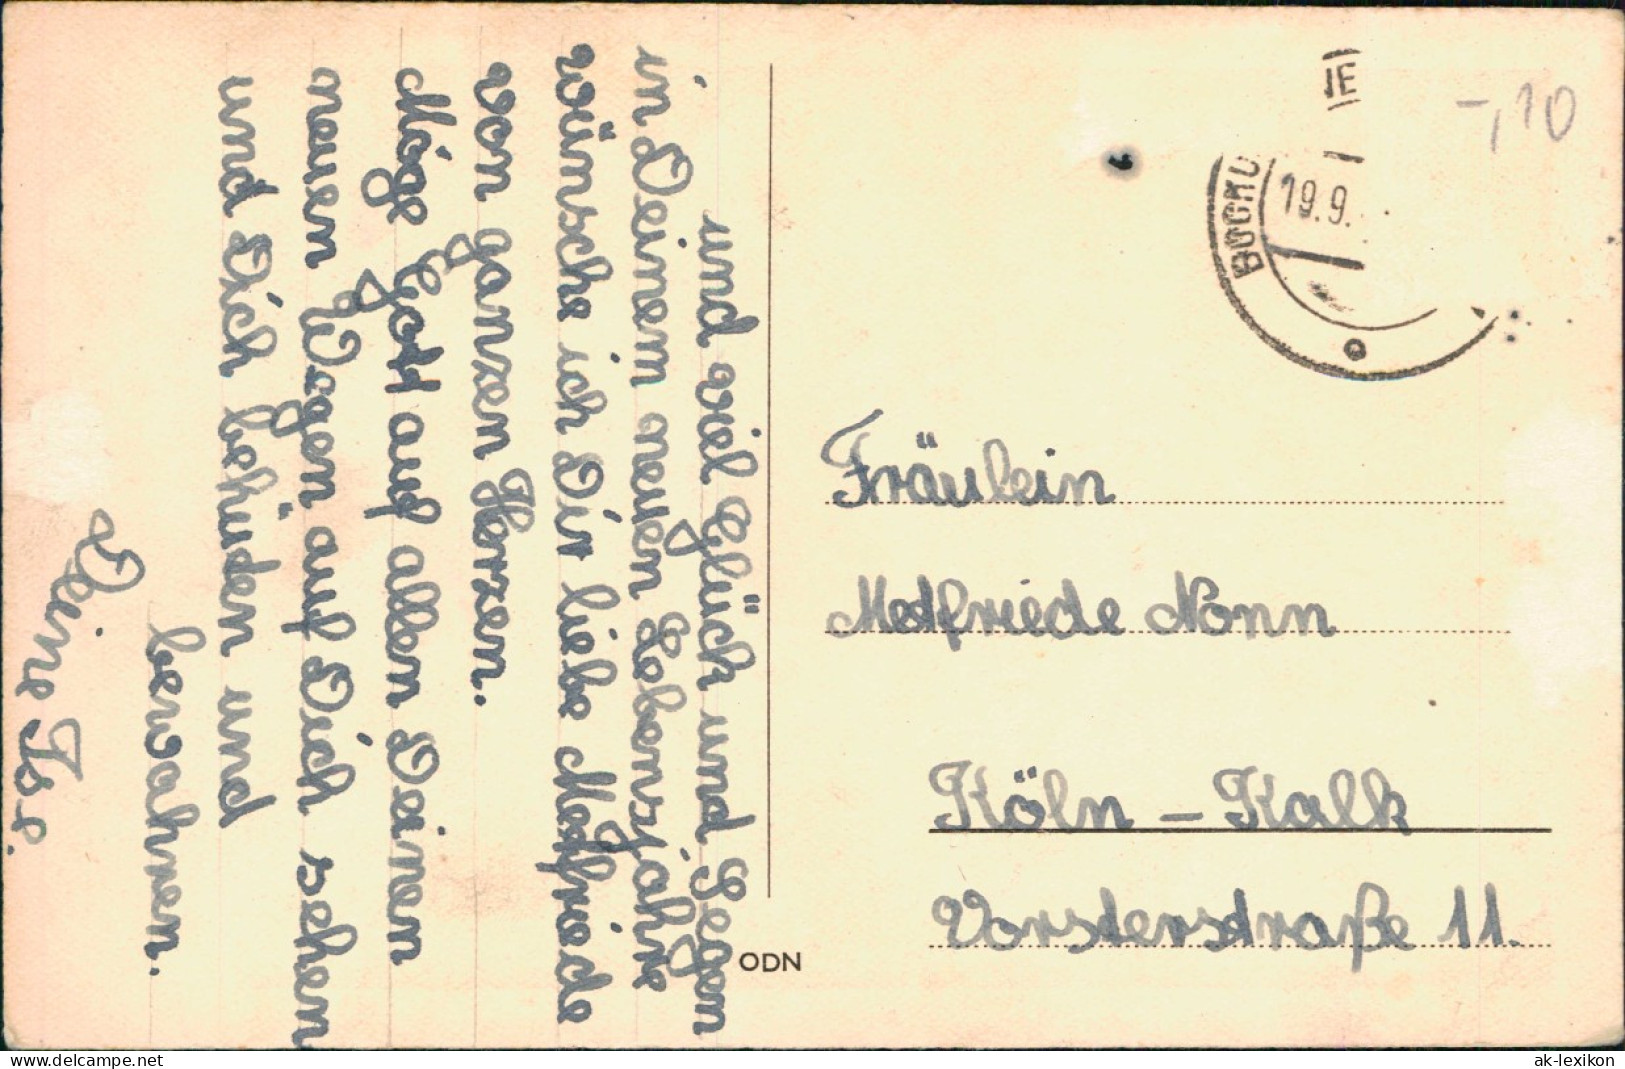 und viel Glück und Segen
in Deinem neuen Lebensjahre
wünsche ich Dir liebe Medfriede
von ganzen Herzen.
Möge Gott auf allen Deinen
neuen Wegen auf Dich sehen
und Dich behüden und
bewahren.
Deine Ise.
BOCHU
19.9.
IE
-,10
Fräulein
Medfriede Nonn
Köln - Kalk
Vorsterstraße 11.
ODN
www.delcampe.net
theau61
ak-lexikon